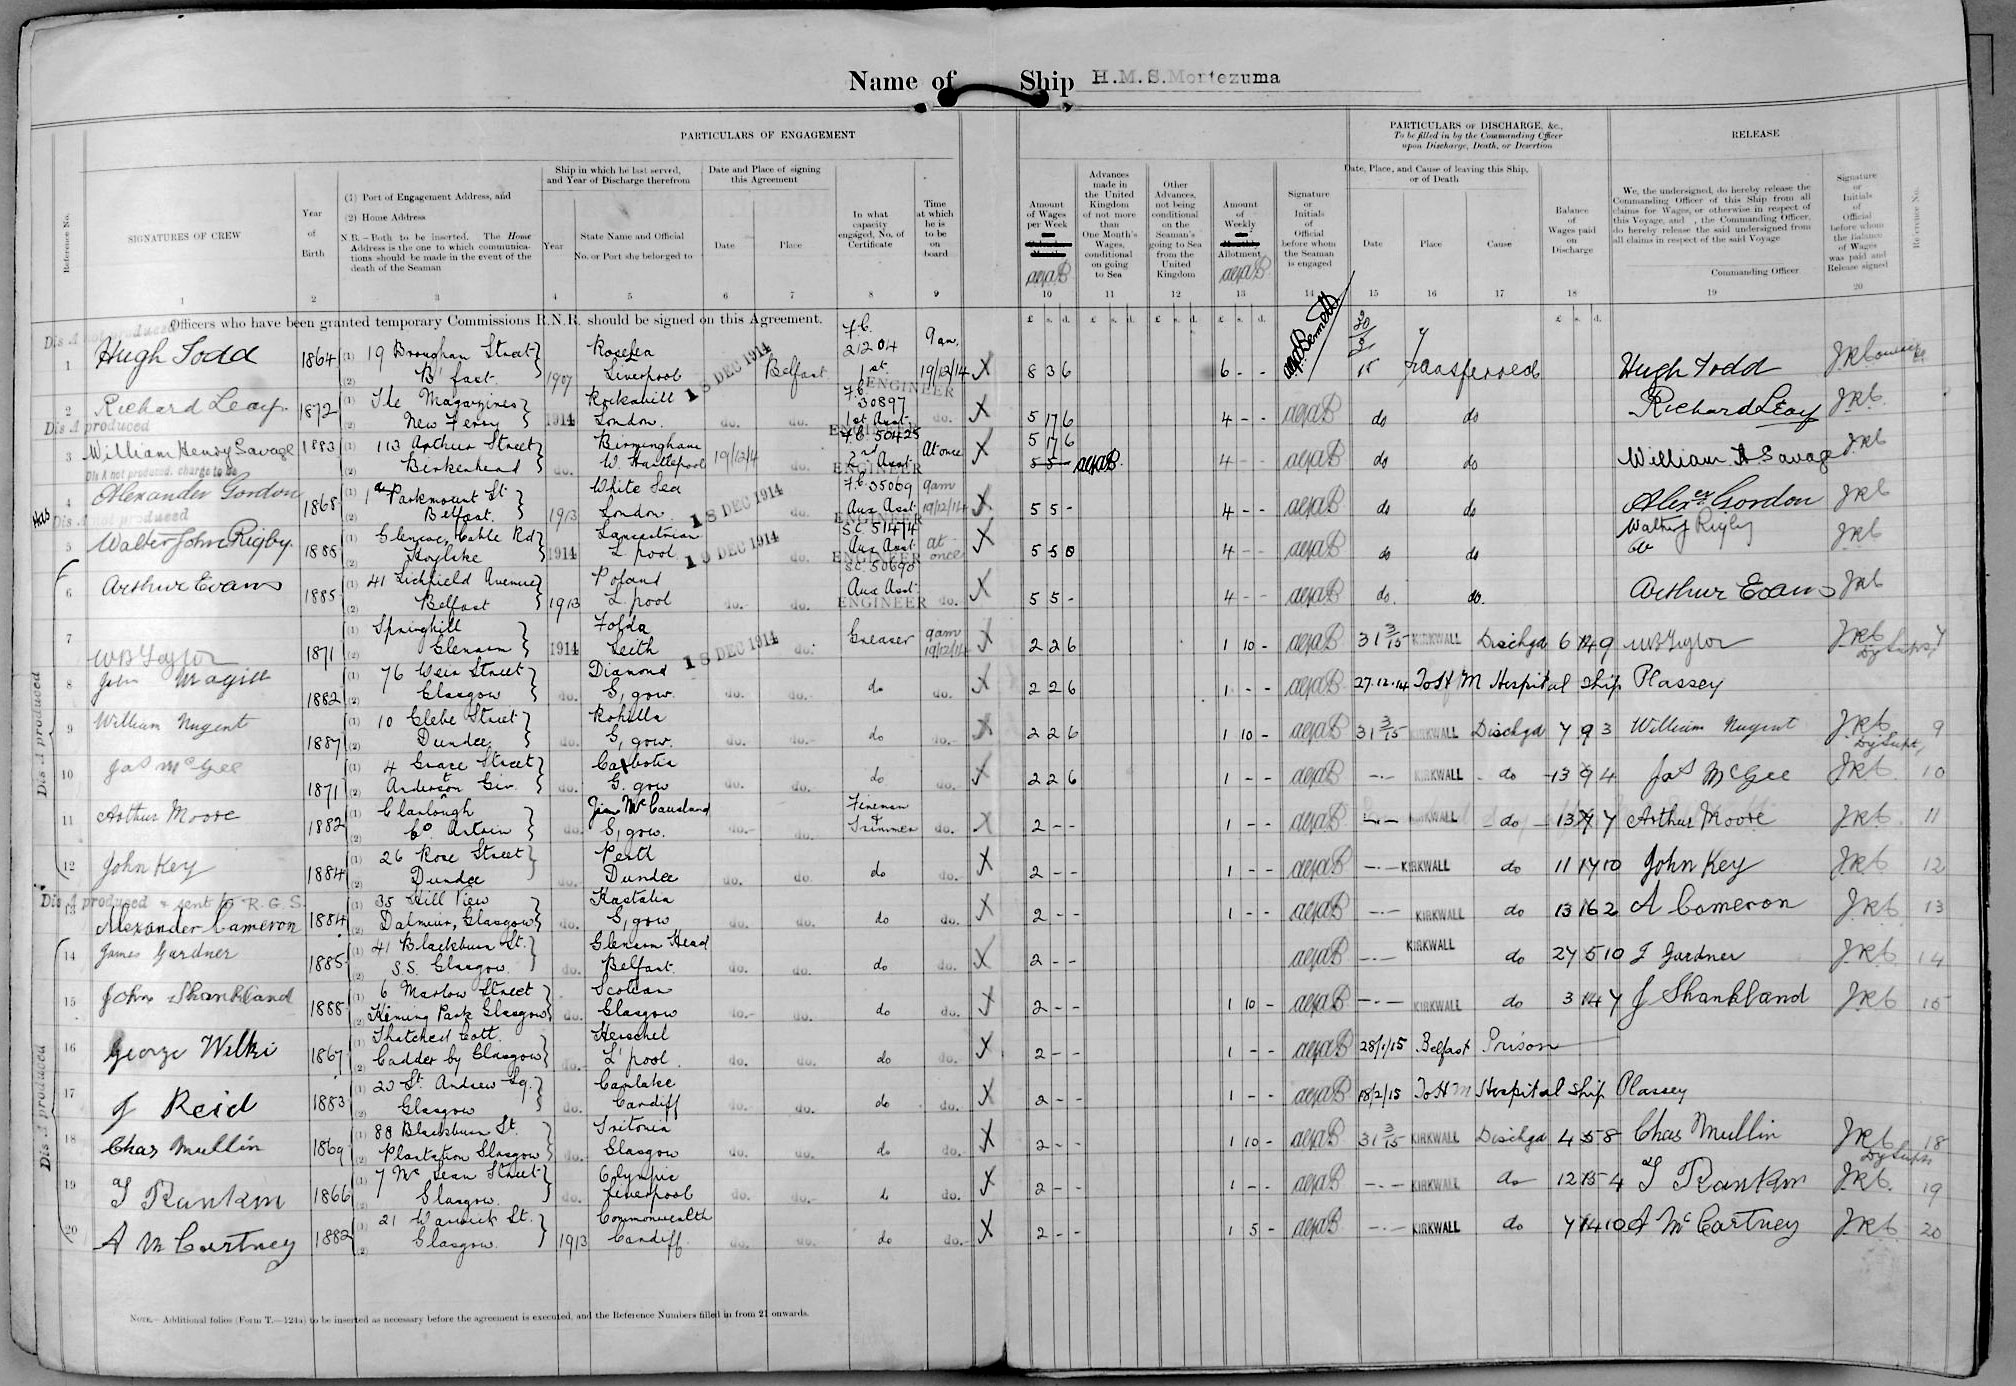 Name of Ship H.M.S. Montezuma
PARTICULARS OF ENGAGEMENT
PARTICULARS OF DISCHARGE, &c.,
To be filled in by the Commanding Officer
upon Discharge, Death, or Desertion
RELEASE
Reference No.
SIGNATURES OF CREW
1
Year
of
Birth
2
(1) Port of Engagement Address, and
(2) Home Address
N.B.—Both to be inserted. The Home
Address is the one to which communica-
tions should be made in the event of the
death of the Seaman
3
Ship in which he last served,
and Year of Discharge therefrom
Year
4
State Name and Official
No. or Port she belonged to
5
Date and Place of signing
this Agreement
Date
6
Place
7
In what
capacity
engaged, No. of
Certificate
8
Time
at which
he is
to be
on
board
9
Amount
of Wages
per Week
10
Advances
made in
the United
Kingdom
of not more
than
One Month's
Wages,
conditional
on going
to Sea
11
Other
Advances,
not being
conditional
on the
Seaman's
going to Sea
from the
United
Kingdom
12
Amount
of
Weekly
Allotment
13
Signature
or
Initials
of
Official
before whom
the Seaman
is engaged
14
Date, Place, and Cause of leaving this Ship,
or of Death
Date
15
Place
16
Cause
17
Balance
of
Wages paid
on
Discharge
18
We, the undersigned, do hereby release the
Commanding Officer of this Ship from all
claims for Wages, or otherwise in respect of
this Voyage, and , the Commanding Officer,
do hereby release the said undersigned from
all claims in respect of the said Voyage
Commanding Officer
19
Signature
or
Initials
of
Official
before whom
the Balance
of Wages
was paid and
Release signed
20
Reference No.
Officers who have been granted temporary Commissions R.N.R. should be signed on this Agreement.
£ s. d. £ s. d. £ s. d. £ s. d. £ s. d.
Dis A not produced
1 Hugh Todd 1864 (1) 19 Brougham Street (2) B'fast 1907 Liverpool 18 DEC 1914 Belfast 21204 1st ENGINEER 9 am 19/12/14 X 8 3 6 6 - - Transferred Hugh Todd
2 Richard Leay 1872 (1) The Magazines (2) New Ferry 1914 Rockabill London do. do. 30897 1st Asst ENGINEER do. X 5 17 6 4 - - do do Richard Leay J.R.C.
Dis A produced
3 William Henry Savage 1883 (1) 113 Arthur Street (2) Birkenhead do. Birmingham W. Hartlepool do. 50425 2nd Asst ENGINEER At once X 5 17 6 5 5 - 4 - - do do William H Savage JRC
Dis A not produced, charge to be
4 Alexander Gordon 1868 (1) Parkmount St (2) Belfast. 1913 White Sea London 18 DEC 1914 do. 35069 Aux Asst ENGINEER 9am 19/12/14 X 5 5 - 4 - - do do Alexr Gordon JRC
Dis A not produced
5 Walter John Rigby 1885 (1) Glencoe, Cable Rd (2) Hoylake 1914 Lancastrian L'pool 19 DEC 1914 do. 51474 Aux Asst ENGINEER at once X 5 5 0 4 - - do do Walter J Rigby JRC
6 Arthur Evans 1885 (1) 41 Lichfield Avenue (2) Belfast 1913 Poland L'pool do. do. 50690 Aux Asst ENGINEER do. X 5 5 - 4 - - do. do. Arthur Evans JRC
Dis A produced
7 WB Taylor 1871 (1) Springhill (2) Glenarm 1914 Leith 18 DEC 1914 do. Greaser 9am 19/12/14 X 2 2 6 1 10 - 31 3/15 KIRKWALL Dischgd 6 14 9 WB Taylor JRC 7
8 John Magill 1882 (1) 76 Weir Street (2) Glasgow do. Diamond G'gow. do. do. do do. X 2 2 6 1 - - 27.12.14 To H M Hospital Ship Plassey
9 William Nugent 1887 (1) 10 Glebe Street (2) Dundee do. Rohilla G'gow. do. do. do do. X 2 2 6 1 10 - 31 3/15 KIRKWALL Dischgd 7 9 3 William Nugent JRC 9
10 Jas McGee 1871 (1) 4 Grace Street (2) Anderston do. G.gow do. do. X 2 2 6 1 - - KIRKWALL do 13 9 4 Jas McGee JRC 10
11 Arthur Moore 1882 (1) (2) Co. Antrim do. G'gow. do. do. Fireman & Trimmer do. X 2 - - 1 - - KIRKWALL do 13 7 Arthur Moore JRC 11
12 John Key 1884 (1) 26 Rose Street (2) Dundee do. Perth Dundee do. do. do do. X 2 - - 1 - - KIRKWALL do 11 17 10 John Key JRC 12
Dis A produced & sent to R.G.S.
13 Alexander Cameron 1884 (1) 35 Hill View (2) Dalmuir, Glasgow do. Kastalia G'gow do. do. do do. X 2 - - 1 - - KIRKWALL do 13 16 2 A Cameron JRC 13
14 James Gardner 1885 (1) 41 Blackburn St. (2) S.S. Glasgow do. Glenarm Head Belfast. do. do. do do. X 2 - - KIRKWALL do 27 5 10 J Gardner JRC 14
15 John Shankland 1888 (1) 6 Marlow Street (2) Kinning Park Glasgow do. Scotian Glasgow do. do. do do. X 2 - - 1 10 - KIRKWALL do 3 14 7 J Shankland JRC 15
Dis A produced
16 George Wilki 1867 (1) Thatched Cott. (2) Cadder by Glasgow do. Herschel L'pool do. do. do do. X 2 - - 1 - - 28/1/15 Belfast Prison
17 J Reid 1883 (1) 20 St. Andrew Sq. (2) Glasgow do. Cardiff do. do. do do. X 2 - - 1 - - 18/2/15 To H M Hospital Ship Plassey
18 Chas Mullin 1869 (1) 88 Blackburn St. (2) Plantation Glasgow do. Tritonia Glasgow do. do. do do. X 2 - - 1 10 - 31 3/15 KIRKWALL Dischgd 4 5 8 Chas Mullin JRC 18
19 T Rankin 1866 (1) 7 McLean Street (2) Glasgow do. Olympic Liverpool do. do. do do. X 2 - - 1 - - KIRKWALL do 12 15 4 T Rankin JRC. 19
20 A McCartney 1882 (1) 21 Warwick St. (2) Glasgow. 1913 Commonwealth Cardiff. do. do. do do. X 2 - - 1 5 - KIRKWALL do 7 14 10 A McCartney JRC 20
NOTE.—Additional folios (Form T.—124a) to be inserted as necessary before the agreement is executed, and the Reference Numbers filled in from 21 onwards.